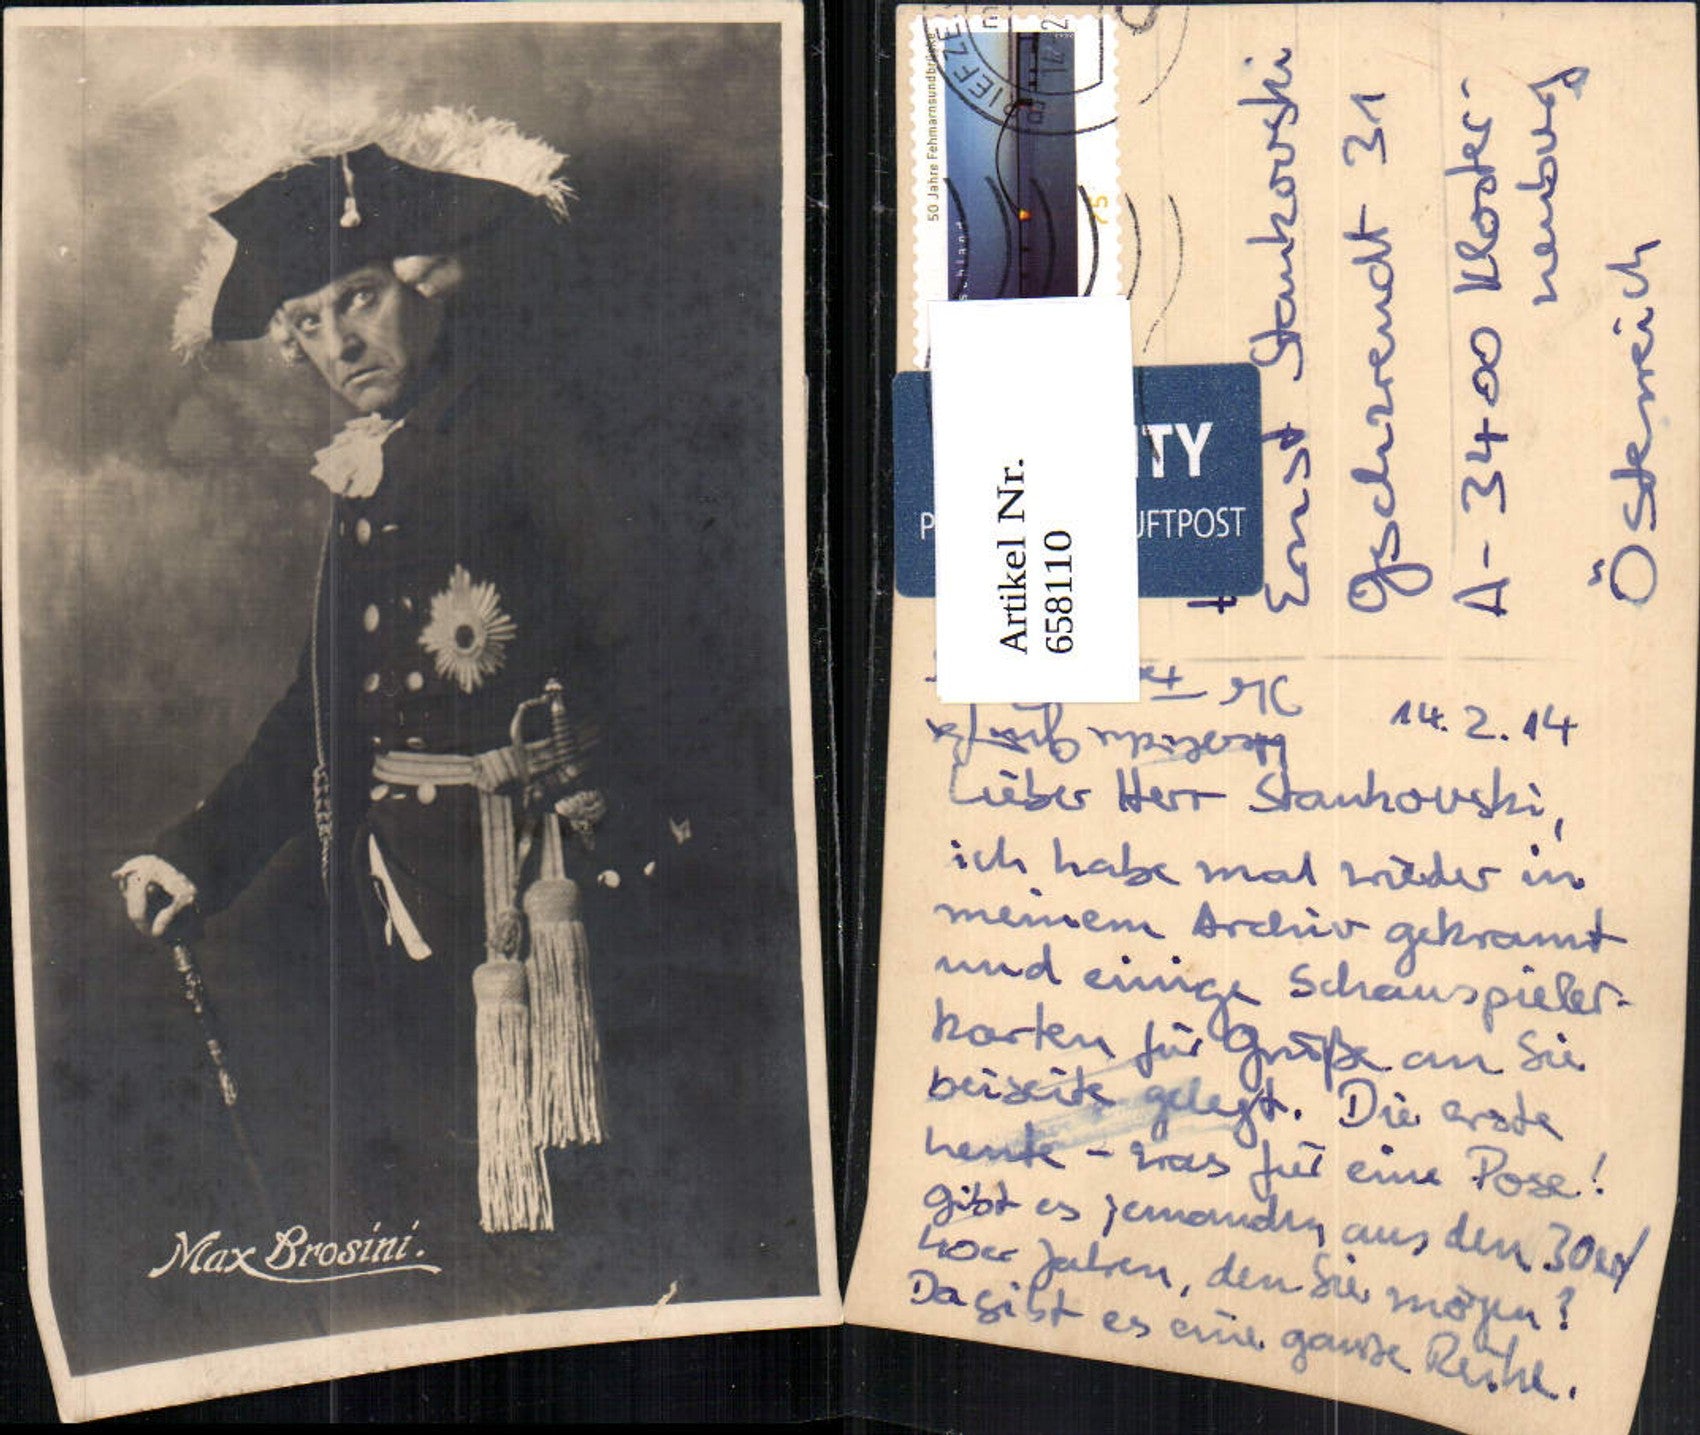 Max Brosini.
50 Jahre Fehmarnsundbrücke
schland
75
BRIEFZE
ITY
P
UFTPOST
Artikel Nr.
658110
Ernst Stankovski
Gschwendt 31
A-3400 Kloster-
neuburg
Österreich
14.2.14
Lieber Herr Stankovski,
ich habe mal wieder in
meinem Archiv gekramt
und einige Schauspieler-
karten für Grüße an Sie
beiseite gelegt. Die erste
heute - was für eine Pose!
Gibt es jemanden aus den 30er/
40er Jahren, den Sie mögen?
Da gibt es eine ganze Reihe.
Herzliche Grüße
Ihr